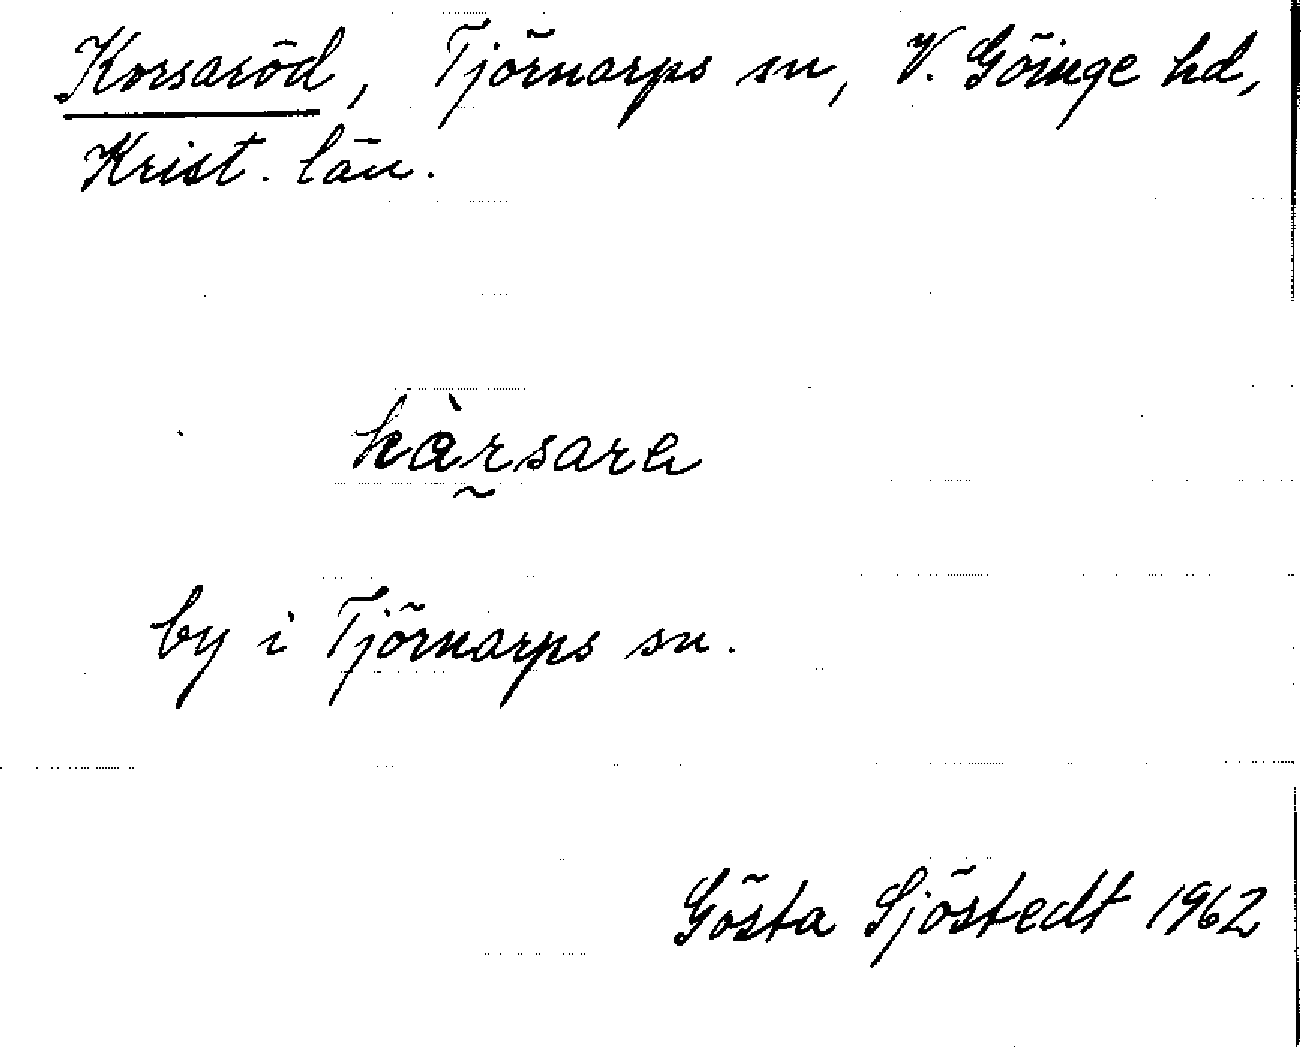 Korsaröd, Tjörnarps sn, V. Göinge hd,
Krist. län.
kàr̰sara
by i Tjörnarps sn.
Gösta Sjöstedt 1962